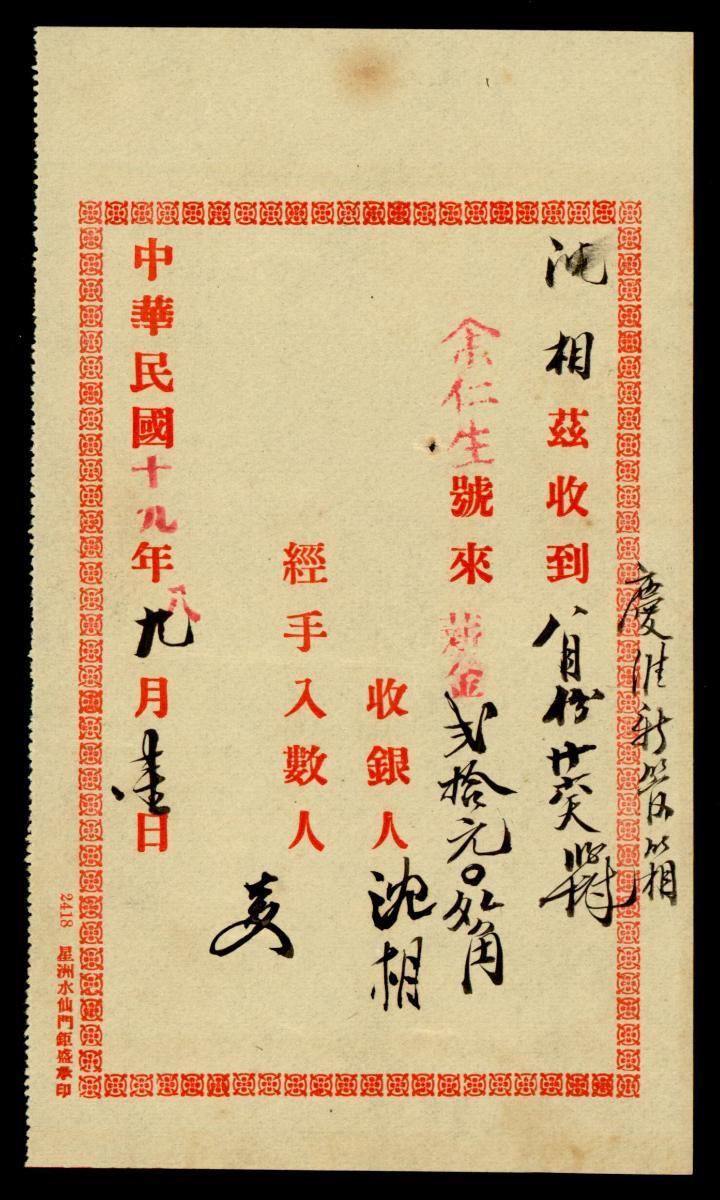 沈相茲收到八月份廿六天
余仁生號來薪金弍拾元〇九角
收銀人沈相
經手入數人
中華民國十九年八九月壹日
2418 星洲水仙門鉅盛承印